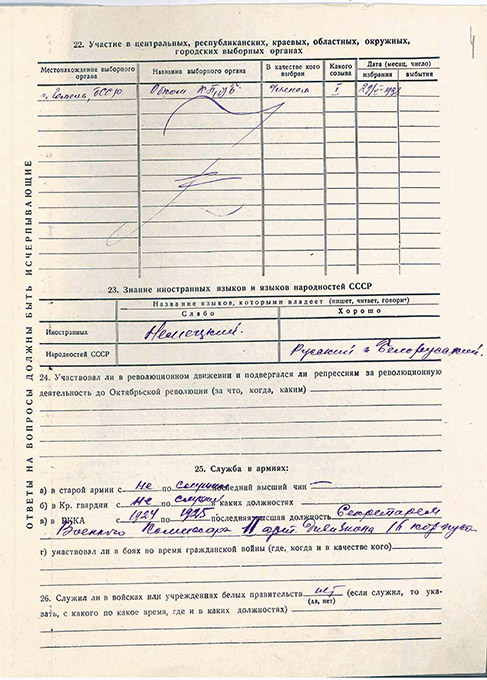 4
22. Участие в центральных, республиканских, краевых, областных, окружных,
городских выборных органах
Местонахождение выборного органа
Название выборного органа
В качестве кого выбран
Какого созыва
Дата (месяц, число)
избрания
выбытия
г. Гомель, БССР
Обком КП(б)Б
Членом
I
ОТВЕТЫ НА ВОПРОСЫ ДОЛЖНЫ БЫТЬ ИСЧЕРПЫВАЮЩИЕ
23. Знание иностранных языков и языков народностей СССР
Название языков, которыми владеет (пишет, читает, говорит)
Слабо
Хорошо
Иностранных
Немецкий.
Народностей СССР
Русский и Белорусский.
24. Участвовал ли в революционном движении и подвергался ли репрессиям за революционную
деятельность до Октябрьской революции (за что, когда, каким)
25. Служба в армиях:
а) в старой армии с не по служил последний высший чин —
б) в Кр. гвардии с не по служил в каких должностях
в) в РККА с 1924 по 1925 последняя высшая должность Секретарем
Военного Комиссара арт. дивизиона корпуса
г) участвовал ли в боях во время гражданской войны (где, когда и в качестве кого)
26. Служил ли в войсках или учреждениях белых правительств нет (если служил, то ука-
(да, нет)
зать, с какого по какое время, где и в каких должностях)